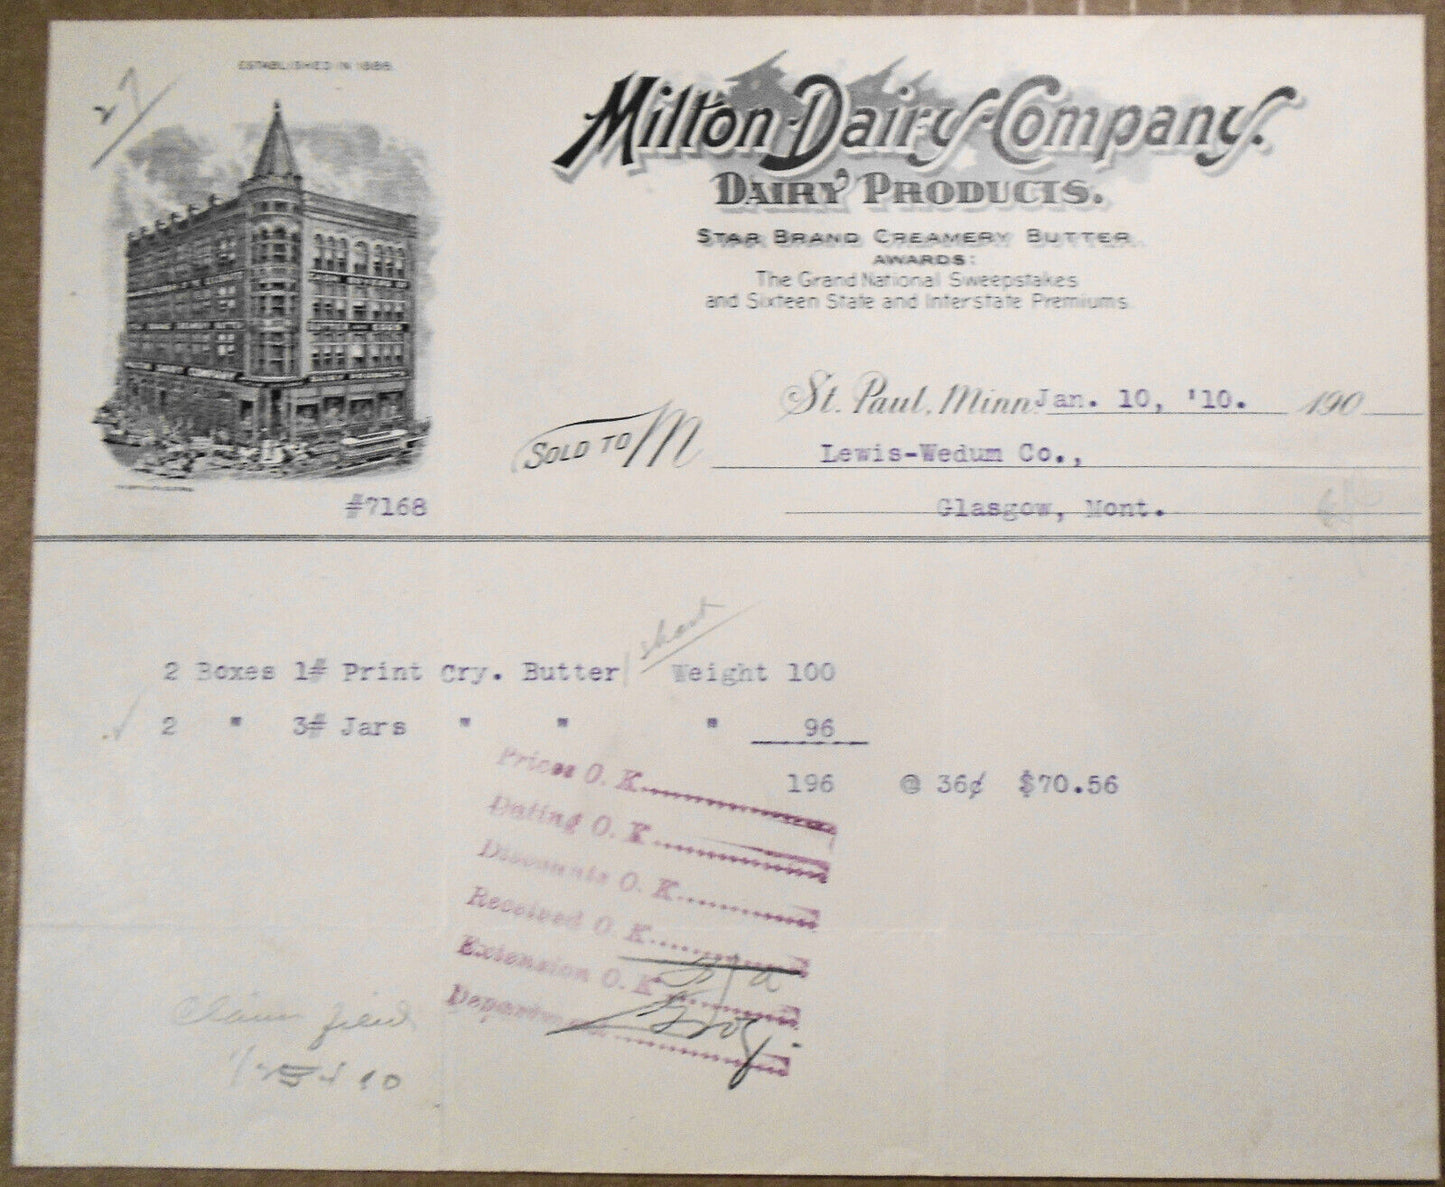 ESTABLISHED IN 1886.
27
Milton Dairy Company.
DAIRY PRODUCTS.
STAR BRAND CREAMERY BUTTER.
AWARDS:
The Grand National Sweepstakes
and Sixteen State and Interstate Premiums.
St. Paul, Minn. Jan. 10, '10. 190
SOLD TO M Lewis-Wedum Co.,
Glasgow, Mont.
#7168
short
2 Boxes 1# Print Cry. Butter Weight 100
2 " 3# Jars " " " 96
196 @ 36¢ $70.56
Prices O. K.
Dating O. K.
Discounts O. K.
Received O. K.
Extension O. K.
Department
Claim filed